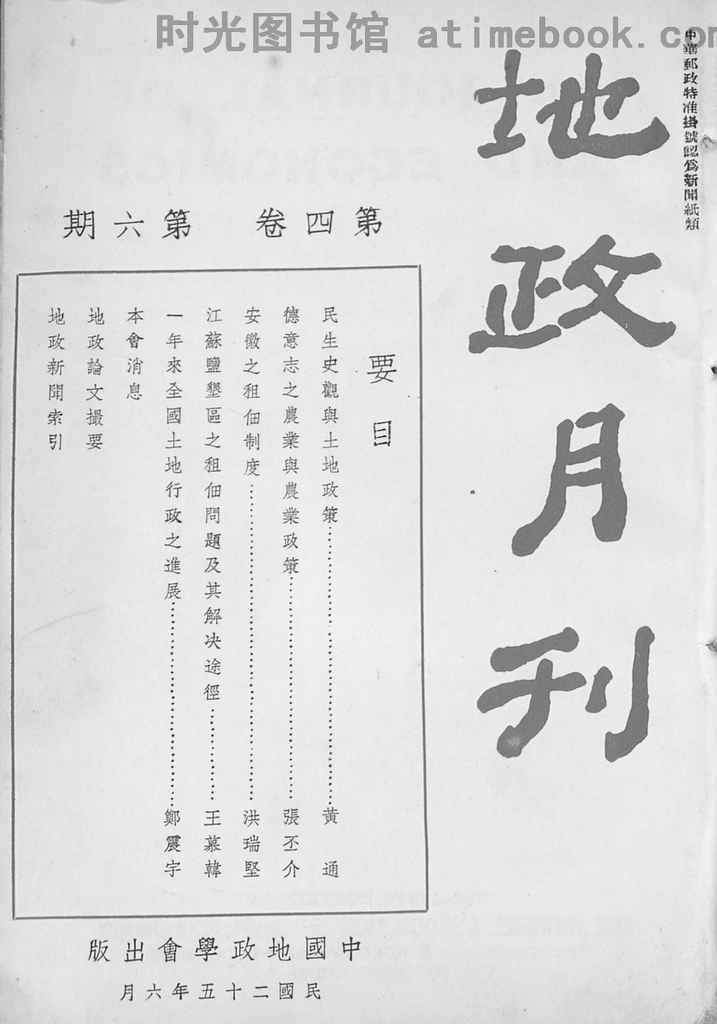 时光图书馆 atimebook.com
中華郵政特准掛號認爲新聞紙類
地政月刊
第四卷 第六期
要目
民生史觀與土地政策……黃通
德意志之農業與農業政策……張丕介
安徽之租佃制度……洪瑞堅
江蘇鹽墾區之租佃問題及其解决途徑……王慕韓
一年來全國土地行政之進展……鄭震宇
本會消息
地政論文撮要
地政新聞索引
中國地政學會出版
民國二十五年六月